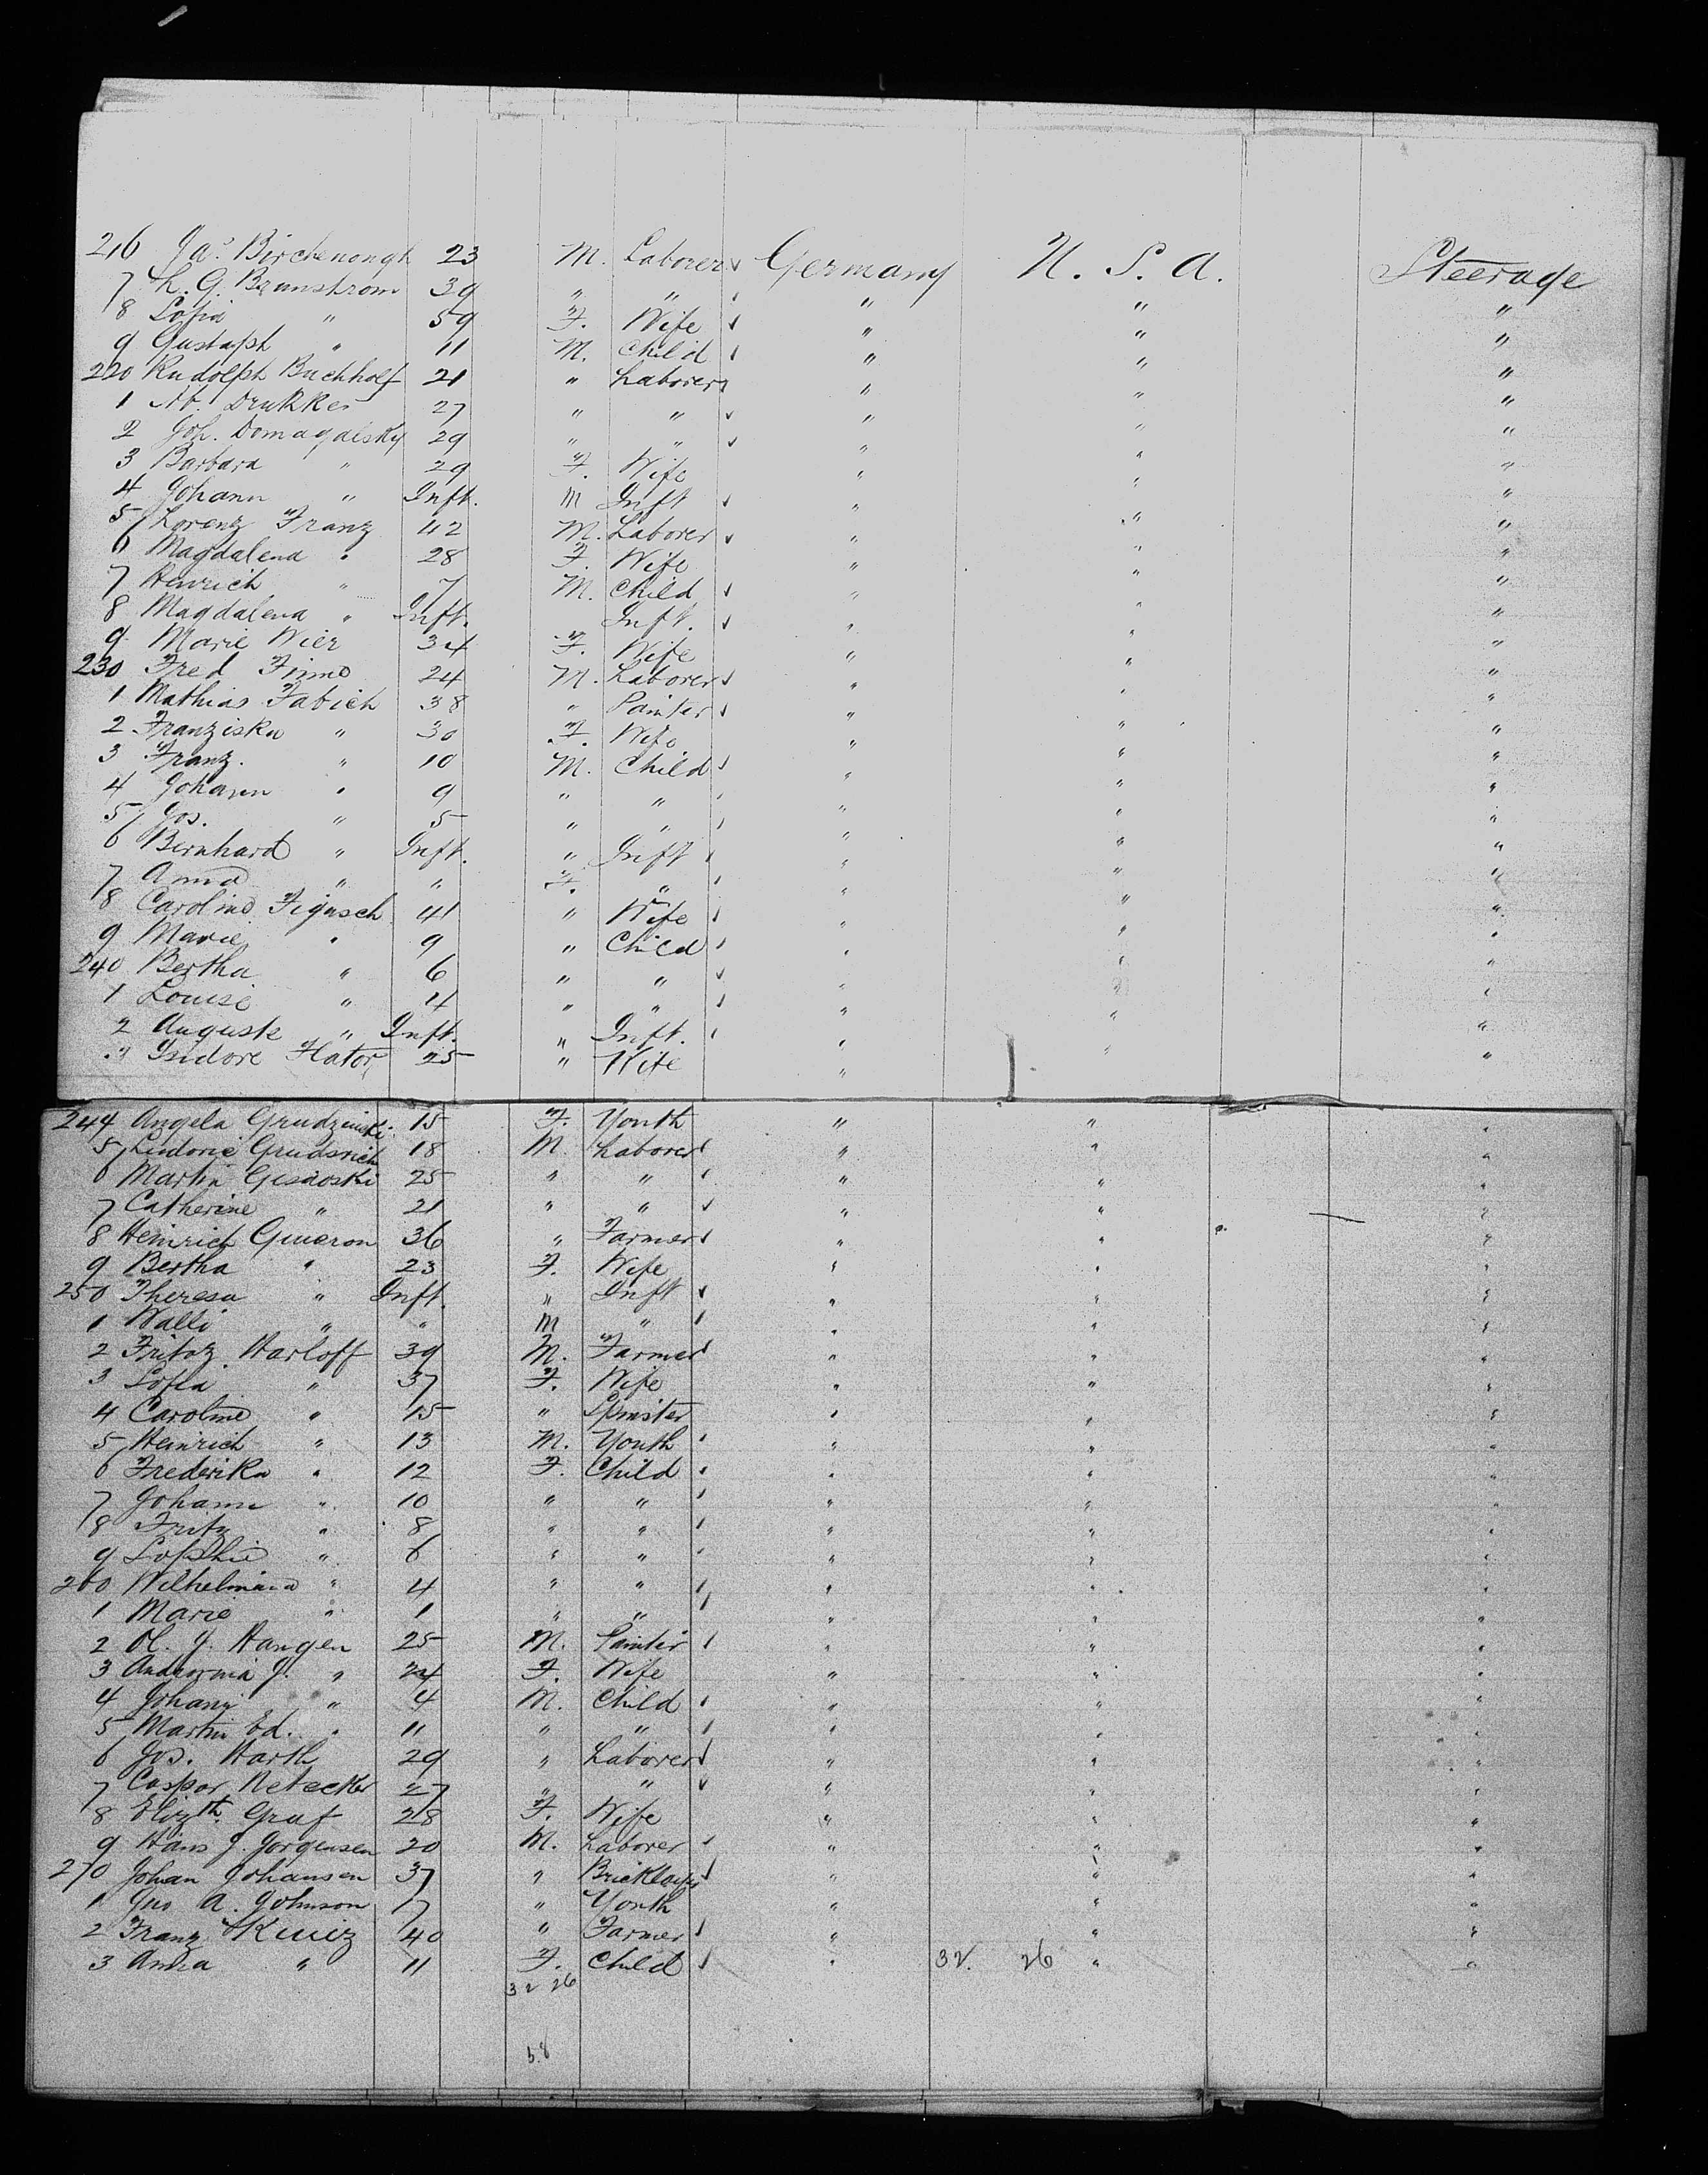 216 Jas. Birchenough 23 M. Laborer Germany U. S. A. Steerage
7 L. G. Braunstrom 39 " " " " "
8 Sofia " 59 F. Wife " " "
9 Gustaph " 11 M. Child " " "
220 Rudolph Buchholf 21 " Laborer " " "
1 Ab. Drukker 27 " " " " "
2 Joh. Domagalsky 29 " " " " "
3 Barbara " 29 F. Wife " " "
4 Johann " Inft. M Inft " " "
5 Lorenz Franz 42 M. Laborer " " "
6 Magdalena " 28 F. Wife " " "
7 Heinrich " 7 M. Child " " "
8 Magdalena " Inft. Inft. " " "
9 Marie Wier 34 F. Wife " " "
230 Fred 24 M. Laborer " " "
1 Mathias Fabich 38 " Painter " " "
2 Franziska " 30 F. Wife " " "
3 Franz. " 10 M. Child " " "
4 Johann " 9 " " " " "
5 Jos. " 5 " " " " "
6 Bernhard " Inft. " Inft " " "
7 Anna " " F. " " " "
8 Caroline Figusch 41 " Wife " " "
9 Marie " 9 " Child " " "
240 Bertha " 6 " " " " "
1 Louise " 4 " " " " "
2 Auguste " Inft. " Inft. " " "
3 Isidore Flator 25 " Wife " " "
244 Angela Grudzinski 15 F. Youth " " "
5 18 M. Laborer " " "
6 Martin 25 " " " " "
7 Catherine " 21 " " " " "
8 Heinrich 36 " Farmer " " "
9 Bertha " 23 F. Wife " " "
250 Theresa " Inft. " Inft " " "
1 " " M " " " "
2 Fritz Harloff 39 M. Farmer " " "
3 Sofia " 37 F. Wife " " "
4 Caroline " 15 " Spinster " " "
5 Heinrich " 13 M. Youth " " "
6 Frederika " 12 F. Child " " "
7 Johann " 10 " " " " "
8 Fritz " 8 " " " " "
9 Sophie " 6 " " " " "
260 Wilhelmina " 4 " " " " "
1 Marie " 1 " " " " "
2 Ol. J. Haugen 25 M. Painter " " "
3 J. " 24 F. Wife " " "
4 Johann " 4 M. Child " " "
5 Martin Ed. " 11 " " " " "
6 Jos. Harth 29 " Laborer " " "
7 Caspar 27 " " " " "
8 Elizth. Graf 28 F. Wife " " "
9 Hans J. Jorgensen 20 M. Laborer " " "
270 Johan Johansen 37 " Bricklayer " " "
1 Jno A. Johnson 17 " Youth " " "
2 Franz 40 " Farmer " " "
3 Anna " 11 F. Child " 32. 26 " "
32 26
58